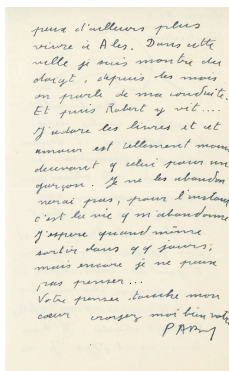 peux d'ailleurs plus
vivre à Alès. Dans cette
ville je suis montrée du
doigt, depuis les mois
on parle de ma conduite.
Et puis Robert y vit....
J'adore les livres et cet
amour est tellement mieux
devant celui pour un
garçon. Je ne les abandon
nerai pas, pour l'instant
c'est la vie q m'abandonne
J'espère quand même
sortir dans qq jours,
mais encore je ne peux
pas penser...
Votre pensée touche mon
cœur croyez moi bien votre